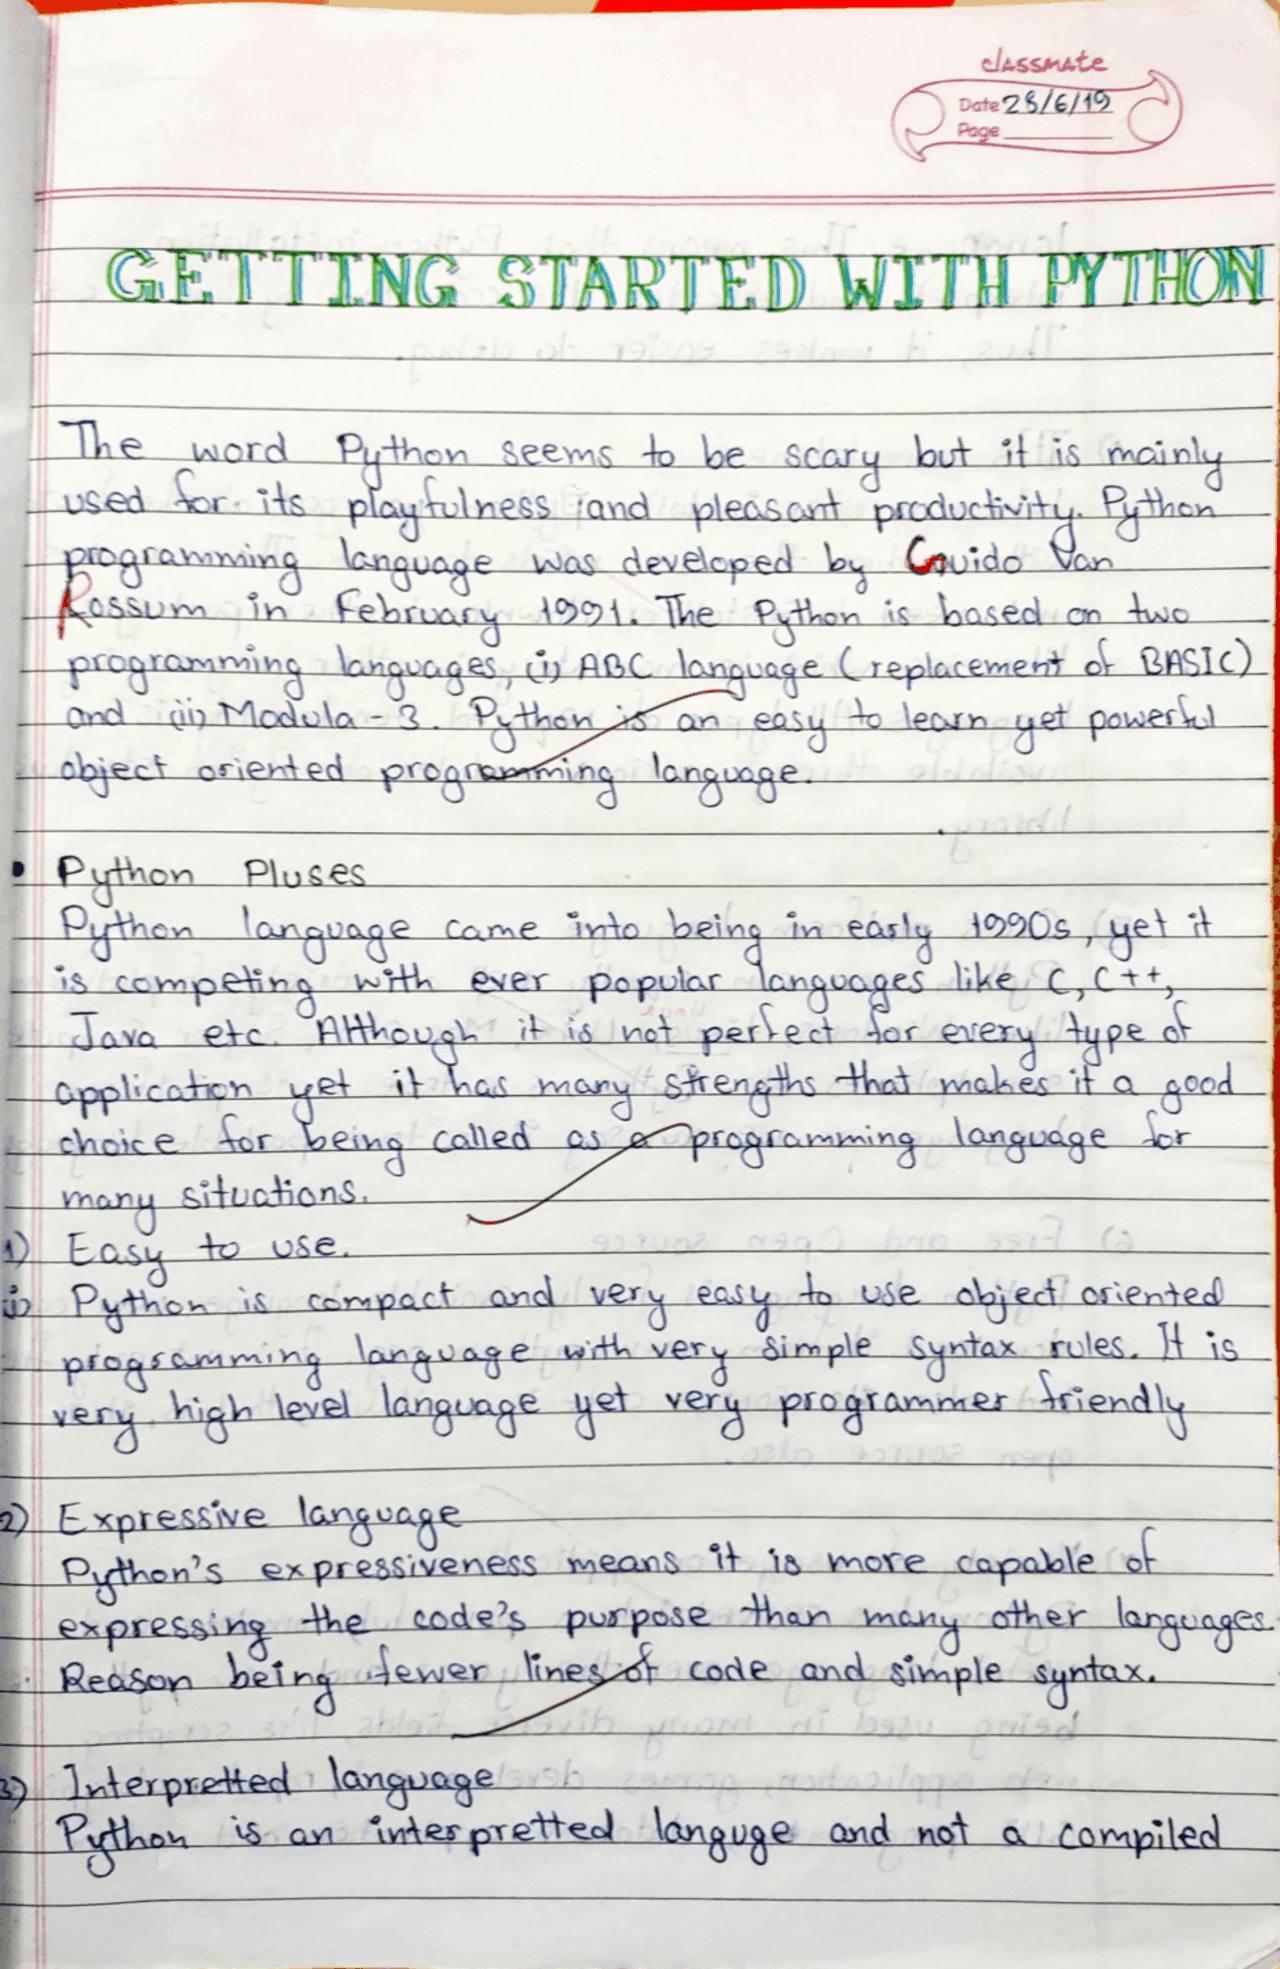 classmate
Date 28/6/19
Page
GETTING STARTED WITH PYTHON
The word Python seems to be scary but it is mainly
used for its playfulness and pleasant productivity. Python
programming language was developed by Guido Van
Rossum in February 1991. The Python is based on two
programming languages, (i) ABC language (replacement of BASIC)
and (ii) Modula - 3. Python is an easy to learn yet powerful
object oriented programming language.
• Python Pluses
Python language came into being in early 1990s, yet it
is competing with ever popular languages like C, C++,
Java etc. Although it is not perfect for every type of
application yet it has many strengths that makes it a good
choice for being called as a programming language for
many situations.
1) Easy to use.
i) Python is compact and very easy to use object oriented
programming language with very simple syntax rules. It is
very high level language yet very programmer friendly
2) Expressive language
Python's expressiveness means it is more capable of
expressing the code's purpose than many other languages.
Reason being fewer lines of code and simple syntax.
3) Interpretted language
Python is an interpretted languge and not a compiled